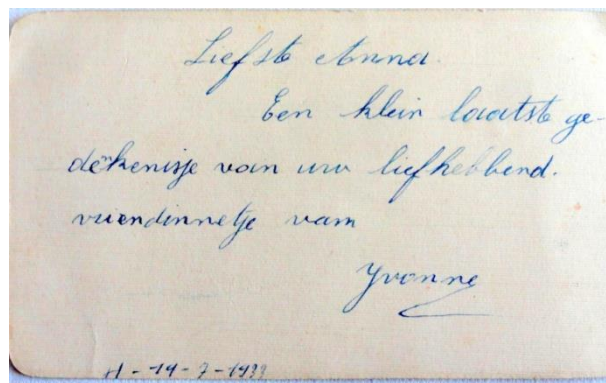 Liefste Anna.
Een klein laatste ge-
denkenisje van uw liefhebbend.
vriendinnetje vam
Yvonne